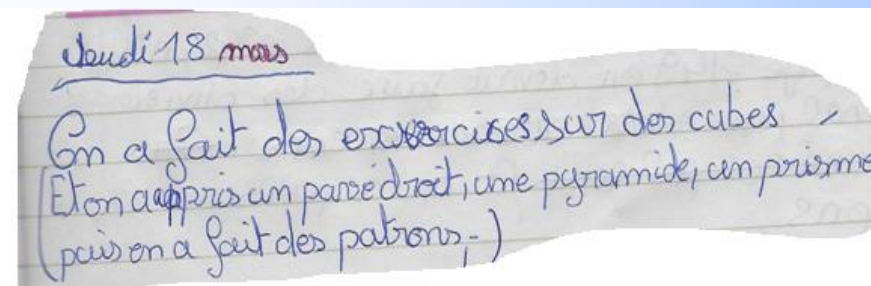 Jeudi 18 mars
On a fait des exercices sur des cubes
(Et on a appris un pavé droit, une pyramide, un prisme
(puis on a fait des patrons,-)